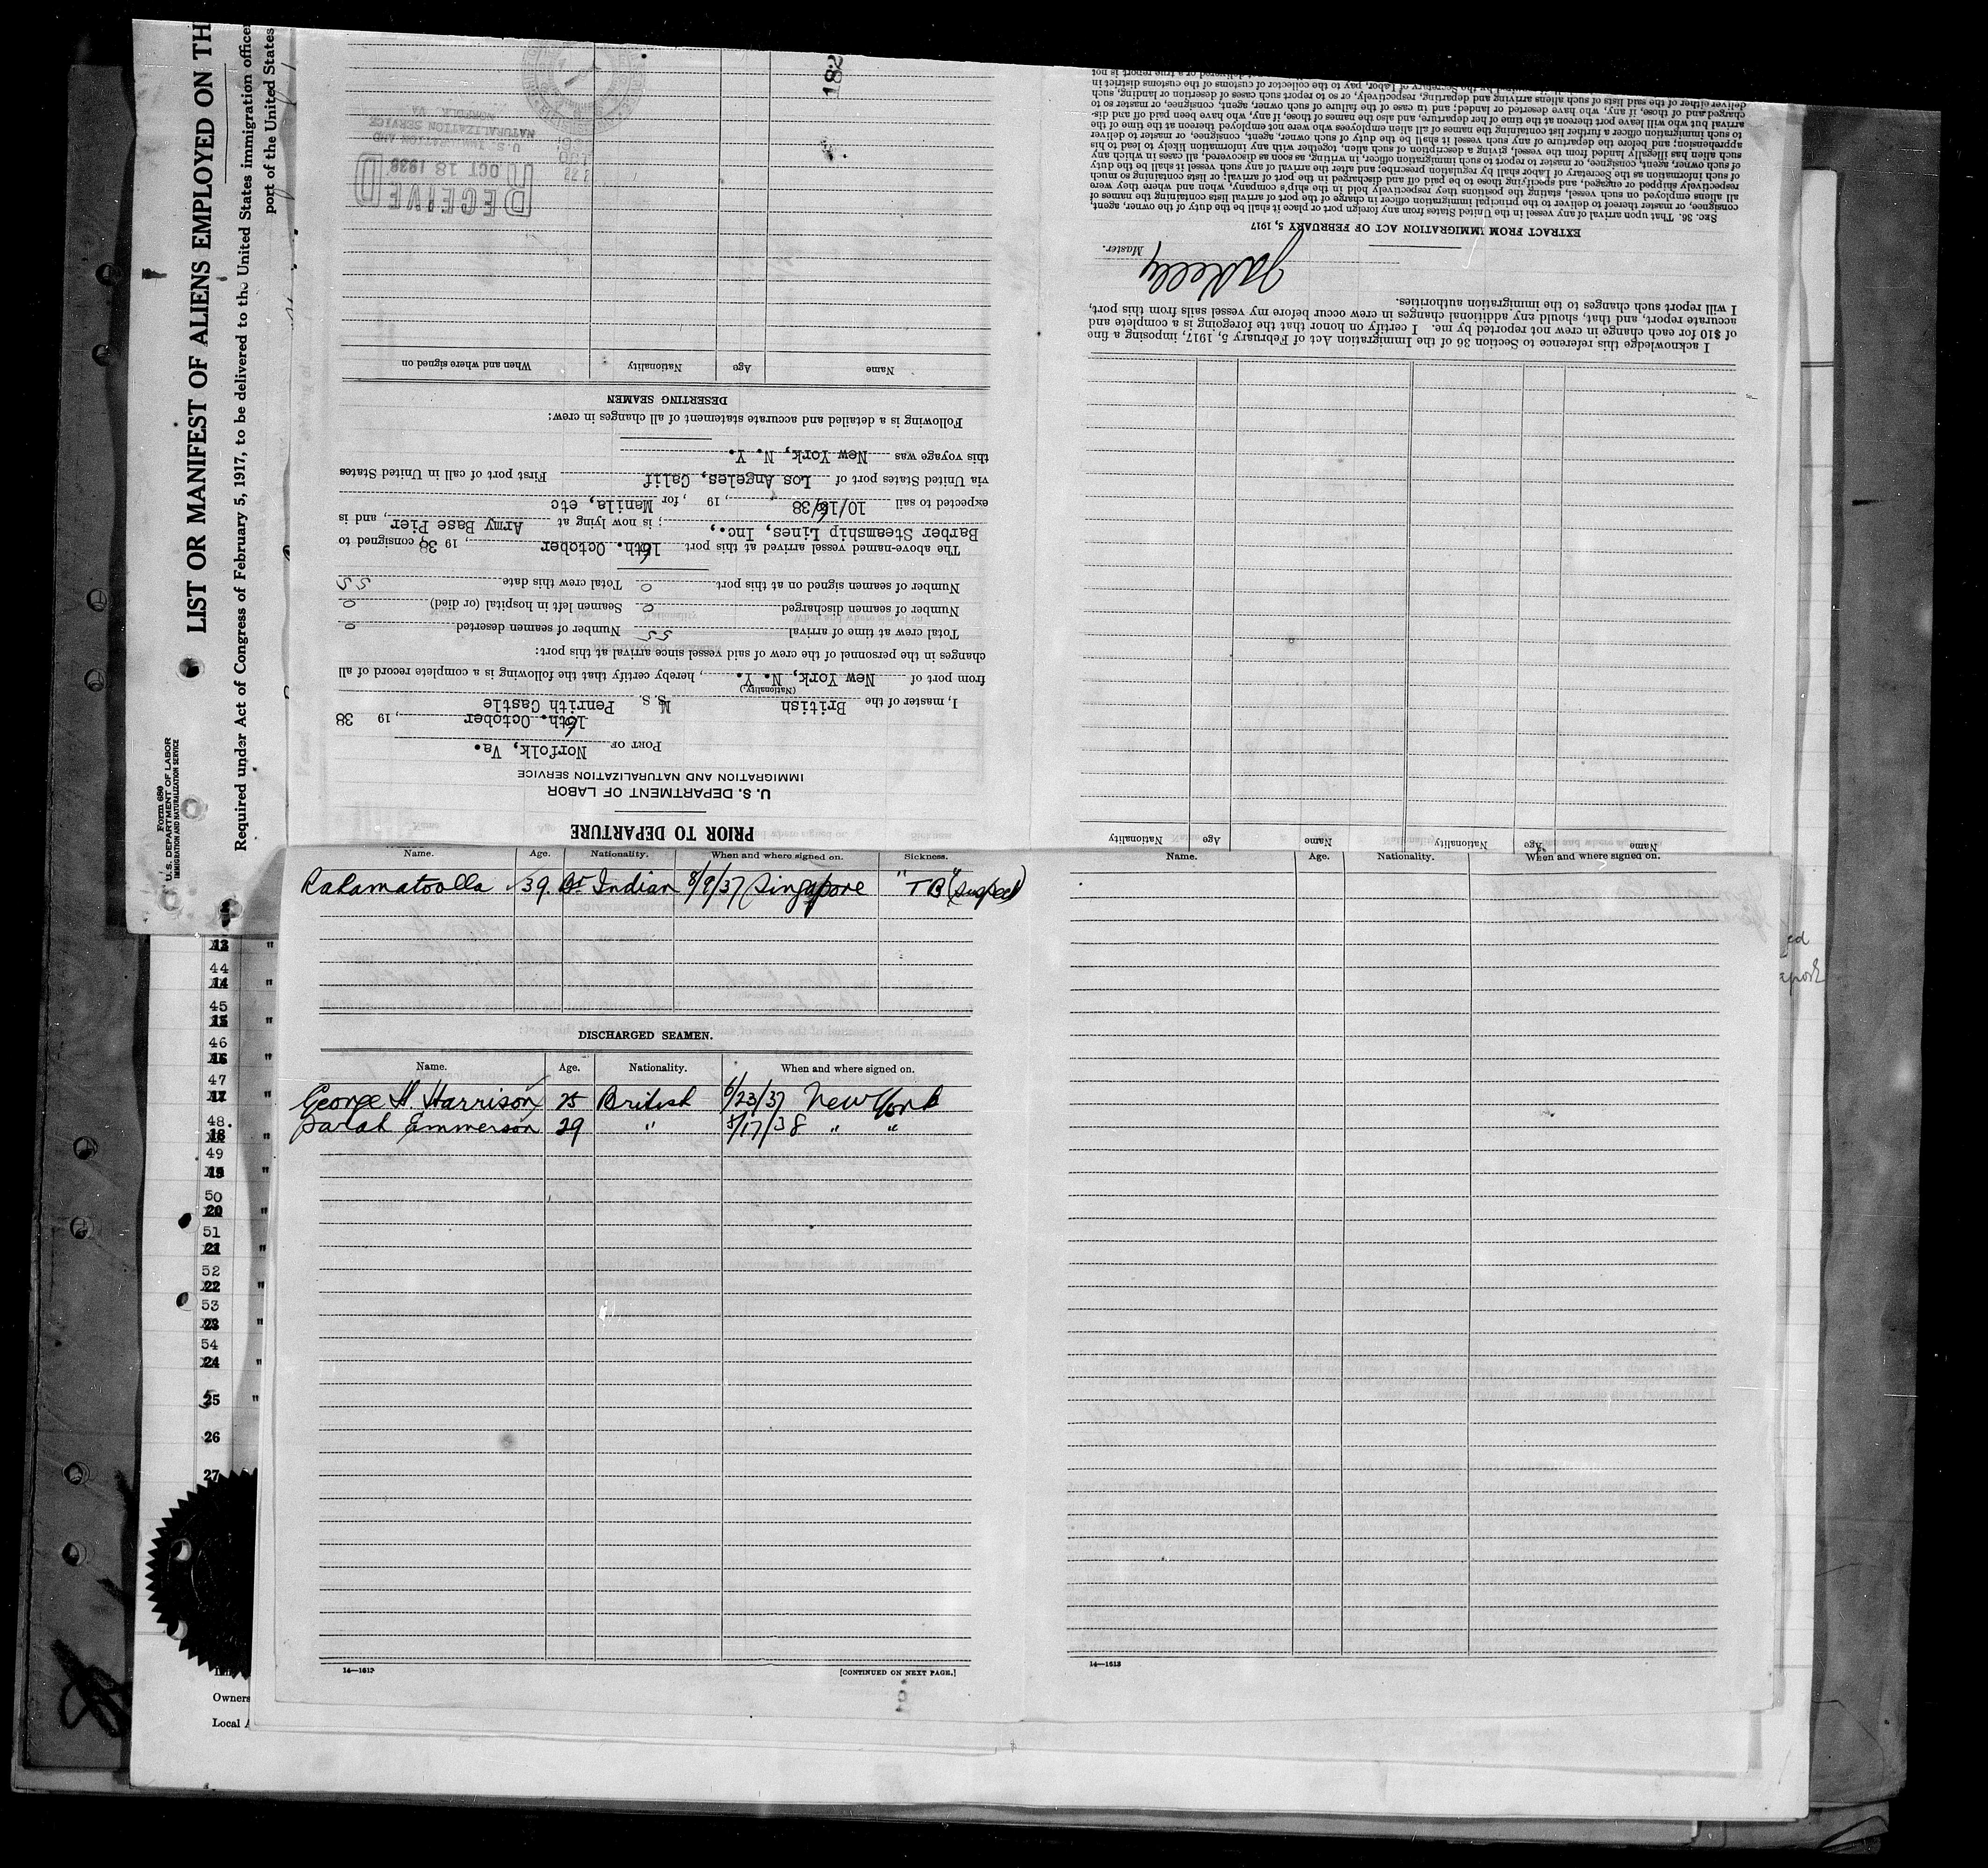 Form 680
U.S. DEPARTMENT OF LABOR
IMMIGRATION AND NATURALIZATION SERVICE
LIST OR MANIFEST OF ALIENS EMPLOYED ON TH
Required under Act of Congress of February 5, 1917, to be delivered to the United States immigration officer
port of the United States
PRIOR TO DEPARTURE
U. S. DEPARTMENT OF LABOR
IMMIGRATION AND NATURALIZATION SERVICE
PORT OF Norfolk, Va.
16th. October, 19 38
I, master of the British M.S. Penrith Castle
(Nationality)
from port of New York, N. Y., hereby certify that the following is a complete record of all
changes in the personnel of the crew of said vessel since arrival at this port:
Total crew at time of arrival 55 Number of seamen deserted 0
Number of seamen discharged 0 Seamen left in hospital (or died) 0
Number of seamen signed on at this port 0 Total crew this date 55
The above-named vessel arrived at this port 16th. October, 19 38 consigned to
Barber Steamship Lines, Inc., ; is now lying at Army Base Pier, and is
expected to sail 10/16/38, 19 , for Manila, etc
via United States port of Los Angeles, Calif First port of call in United States
this voyage was New York, N. Y.
Following is a detailed and accurate statement of all changes in crew:
DESERTING SEAMEN
Name Age Nationality When and where signed on
RECEIVED
OCT 18 1938
U. S. IMMIGRATION AND
NATURALIZATION SERVICE
NORFOLK, VA.
182
Name Age Nationality Name Age Nationality
I acknowledge this reference to Section 36 of the Immigration Act of February 5, 1917, imposing a fine
of $10 for each change in crew not reported by me. I certify on honor that the foregoing is a complete and
accurate report, and that, should any additional changes in crew occur before my vessel sails from this port,
I will report such changes to the immigration authorities.
Master.
EXTRACT FROM IMMIGRATION ACT OF FEBRUARY 5, 1917
SEC. 36. That upon arrival of any vessel in the United States from any foreign port or place it shall be the duty of the owner, agent,
consignee, or master thereof to deliver to the principal immigration officer in charge of the port of arrival lists containing the names of
all aliens employed on such vessel, stating the positions they respectively hold in the ship's company, when and where they were
respectively shipped or engaged, and specifying those to be paid off and discharged in the port of arrival; or lists containing so much
of such information as the Secretary of Labor shall by regulation prescribe; and after the arrival of any such vessel it shall be the duty
of such owner, agent, consignee, or master to report to such immigration officer, in writing, as soon as discovered, all cases in which any
such alien has illegally landed from the vessel, giving a description of such alien, together with any information likely to lead to his
apprehension; and before the departure of any such vessel it shall be the duty of such owner, agent, consignee, or master to deliver
to such immigration officer a further list containing the names of all alien employees who were not employed thereon at the time of the
arrival but who will leave port thereon at the time of her departure, and also the names of those, if any, who have been paid off and dis-
charged and of those, if any, who have deserted or landed; and in case of the failure of such owner, agent, consignee, or master so to
deliver either of the said lists of such aliens arriving and departing, respectively, or so to report such cases of desertion or landing, such
Name. Age. Nationality. When and where signed on. Sickness.
Rahamatoolla 39. Br Indian 8/9/37 Singapore "TB" (suspect)
DISCHARGED SEAMEN.
Name. Age. Nationality. When and where signed on.
George H. Harrison 25 British 6/23/37 New York
Sarah Emmerson 29 " 8/17/38 " "
14—1613
[CONTINUED ON NEXT PAGE.]
Name. Age. Nationality. When and where signed on.
14—1613
44
14 "
45
15 "
46
16 "
47
17 "
48
18 "
49
19 "
50
20 "
51
21 "
52
22 "
53
23 "
54
24 "
25 "
26
27
Owners
Local A